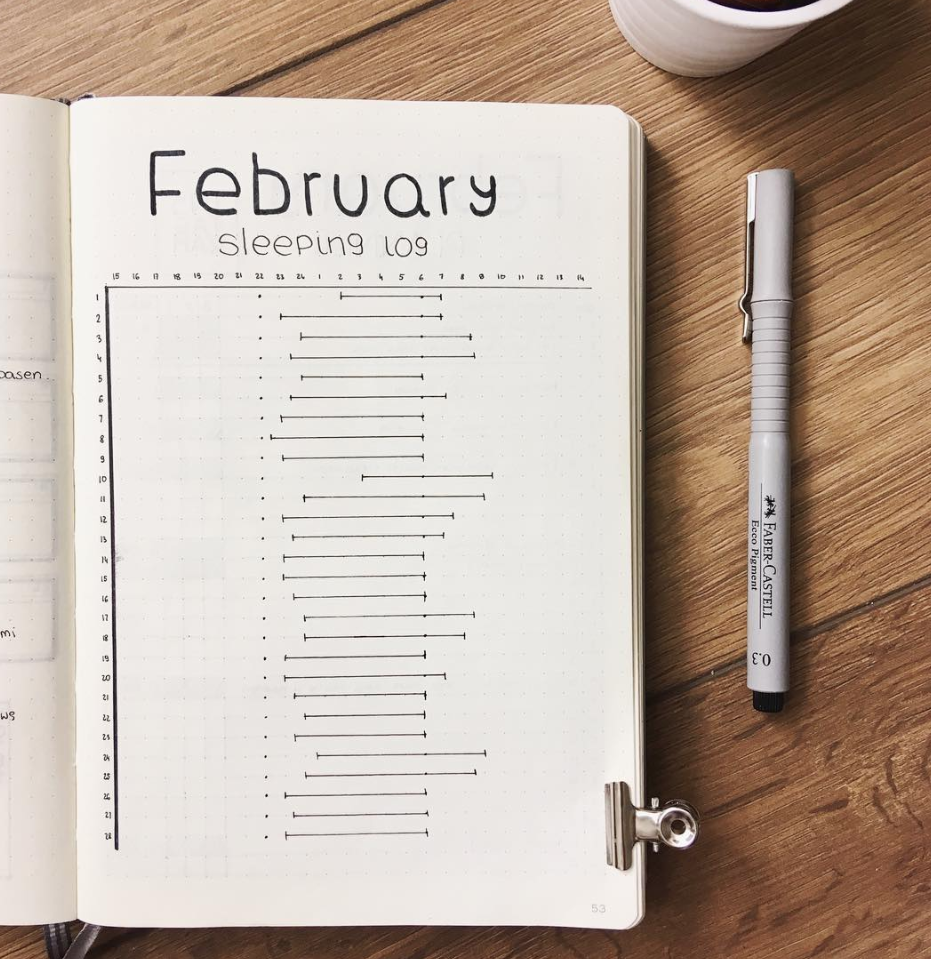 February
sleeping log
15 16 17 18 19 20 21 22 23 24 1 2 3 4 5 6 7 8 9 10 11 12 13 14
1
2
3
4
5
6
7
8
9
10
11
12
13
14
15
16
17
18
19
20
21
22
23
24
25
26
27
28
53
basen
mi
ws
FABER-CASTELL
Ecco Pigment
0.3